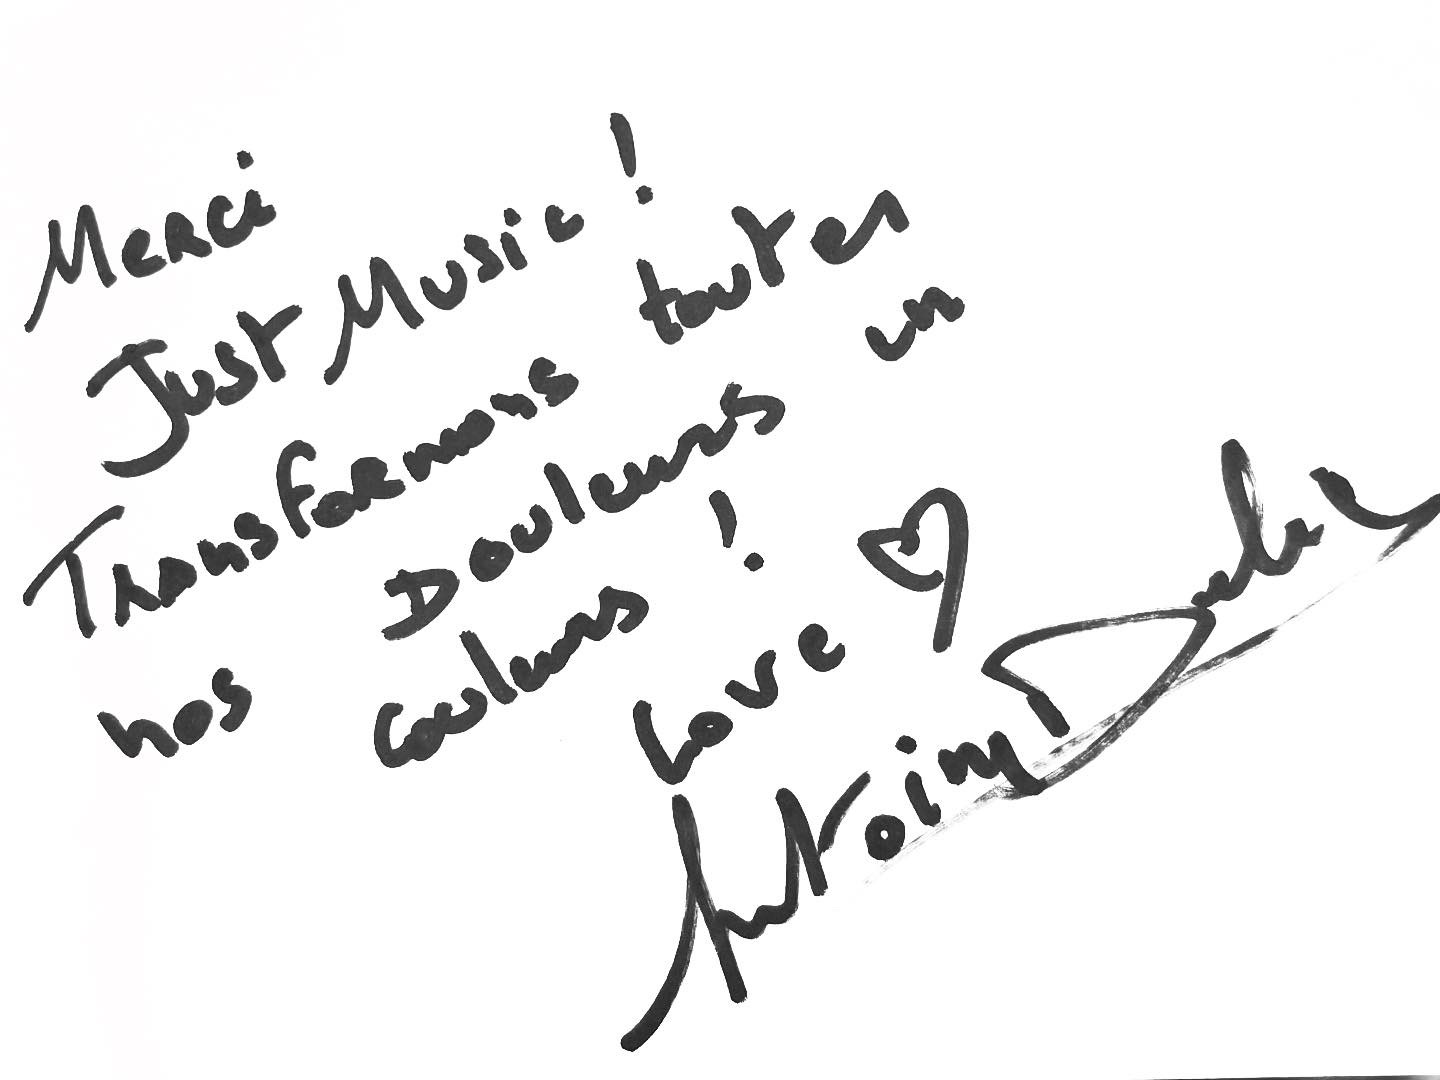 Merci
Just Music !
Transformons toutes
nos Douleurs en
Couleurs !
Love
Antoine